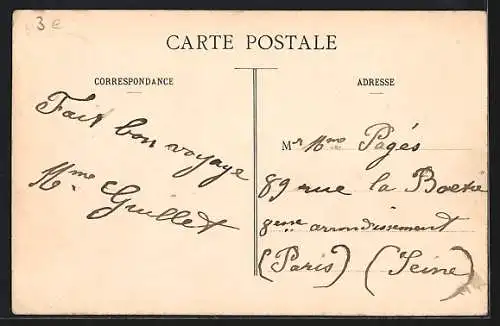 3e
CARTE POSTALE
CORRESPONDANCE
Fait bon voyage
Mme Guillet
ADRESSE
Mr Mme Pagés
89 rue la Boetie
8eme arrondissement
(Paris) (Seine)